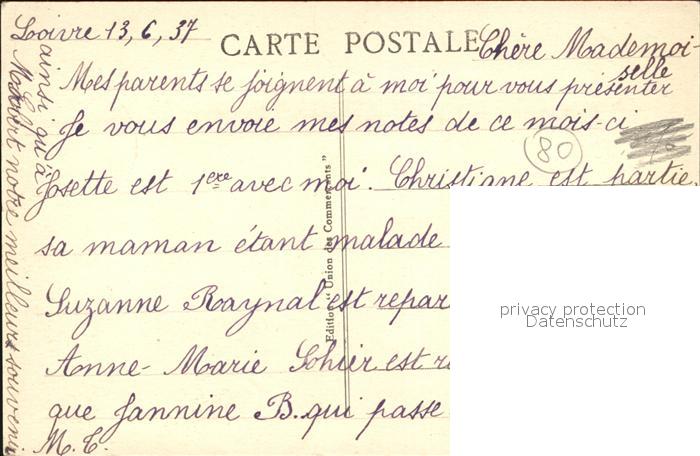 Loivre 13, 6, 37
CARTE POSTALE
Chère Mademoi-
selle
Mes parents se joignent à moi pour vous présenter
Je vous envoie mes notes de ce mois-ci
80
Josette est 1ère avec moi. Christiane est partie,
sa maman étant malade
Suzanne Raynal est repar
Anne-Marie Sohier est r
que Jannine B. qui passe
M. C.
ainsi qu'à
notre meilleurs souvenir
Edition "Union des Commerçants"
privacy protection
Datenschutz